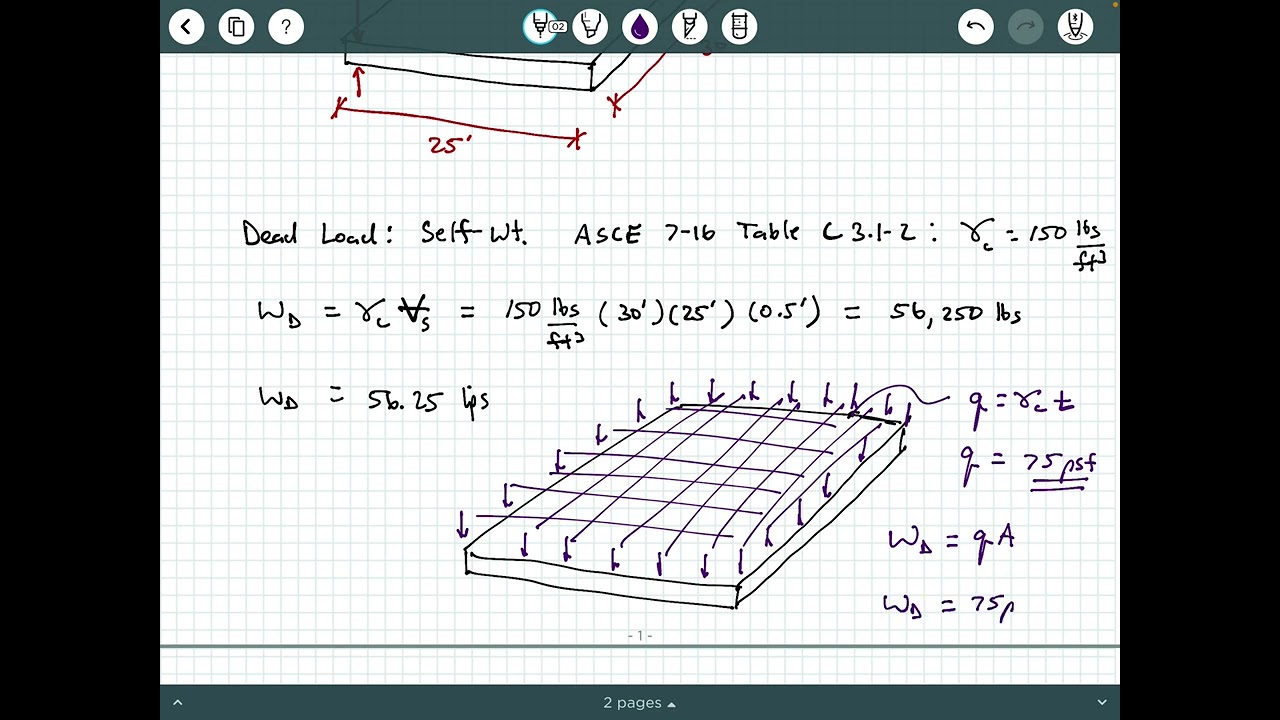 ?
02
25'
Dead Load: Self-Wt. ASCE 7-16 Table C3.1-2: γc = 150 lbs/ft³
WD = γc Vs = 150 lbs/ft³ (30')(25')(0.5') = 56,250 lbs
WD = 56.25 kips
q = γc t
q = 75psf
WD = qA
WD = 75p
- 1 -
2 pages